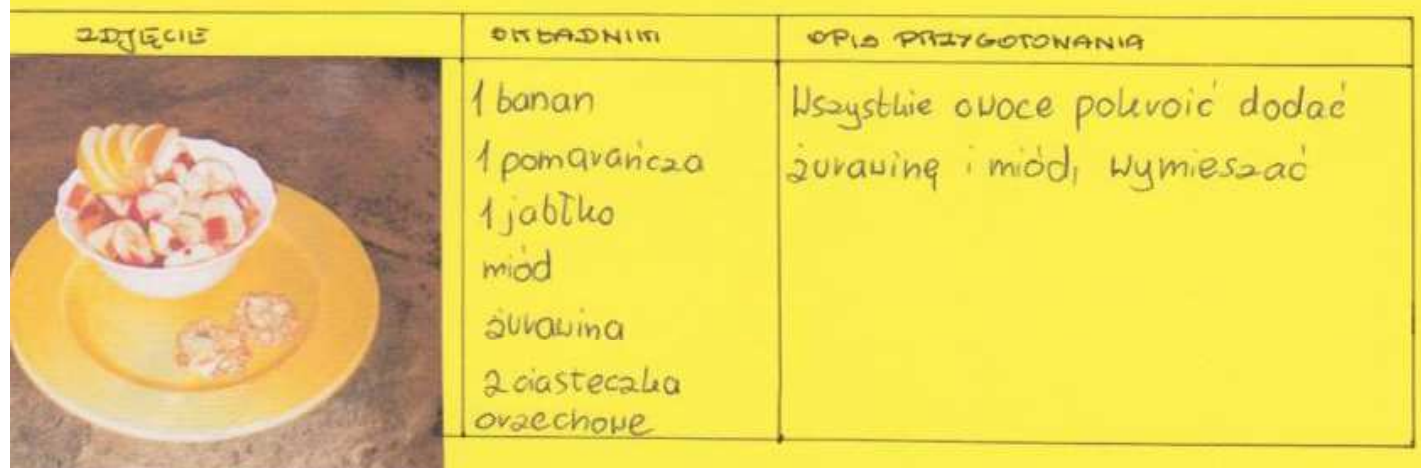 ZDJĘCIE
SKŁADNIKI
OPIS PRZYGOTOWANIA
1 banan
1 pomarańcza
1 jabłko
miód
żurawina
2 ciasteczka
orzechowe
Wszystkie owoce pokroić dodać
żurawinę i miód, wymieszać